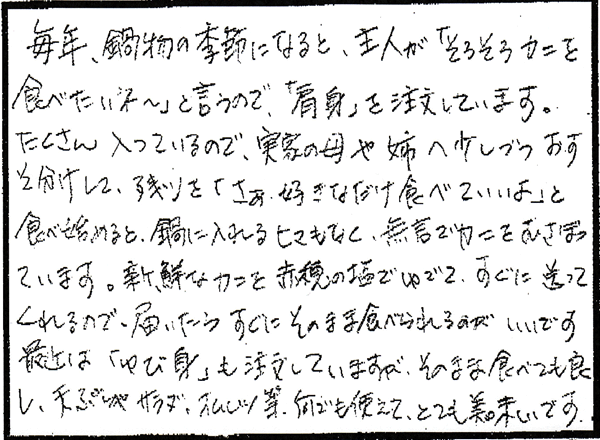 毎年、鍋物の季節になると、主人が「そろそろカニを
食べたいネ〜」と言うので、「肩身」を注文しています。
たくさん入っているので、実家の母や姉へ少しづつおす
そ分けして、残りを「さぁ、好きなだけ食べていいよ」と
食べ始めると、鍋に入れるヒマもなく、無言でカニをむさぼっ
ています。新鮮なカニを赤穂の塩でゆでて、すぐに送って
くれるので、届いたらすぐにそのまま食べられるのがいいです
最近は「ゆび身」も注文していますが、そのまま食べても良
し、天ぷらやサラダ、オムレツ等、何でも使えて、とても美味しいです。